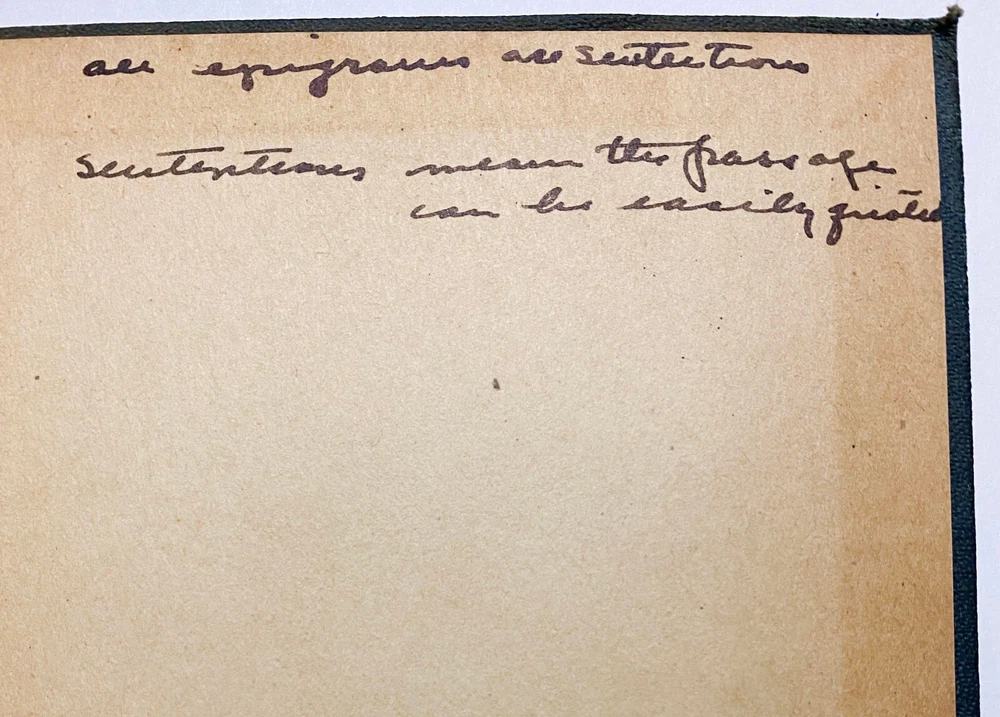 all epigrams are sententious
sententious mean the passage
can be easily quoted